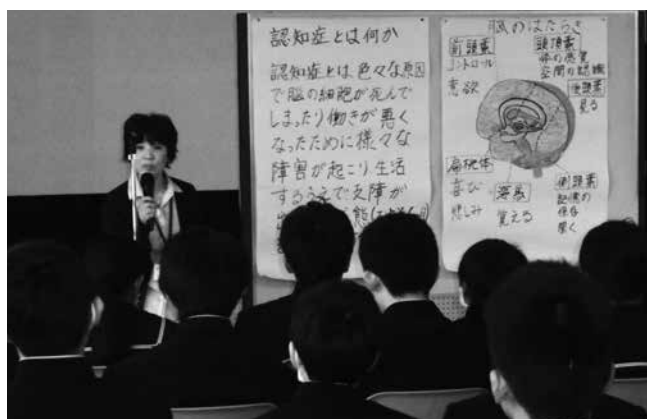 認知症とは何か
認知症とは色々な原因
で脳の細胞が死んで
しまったり働きが悪く
なったために様々な
障害が起こり生活
するうえで支障が
脳のはたらき
前頭葉
コントロール
意欲
頭頂葉
体の感覚
空間の認識
後頭葉
見る
扁桃体
喜び
悲しみ
海馬
覚える
側頭葉
記憶の
保存
聞く